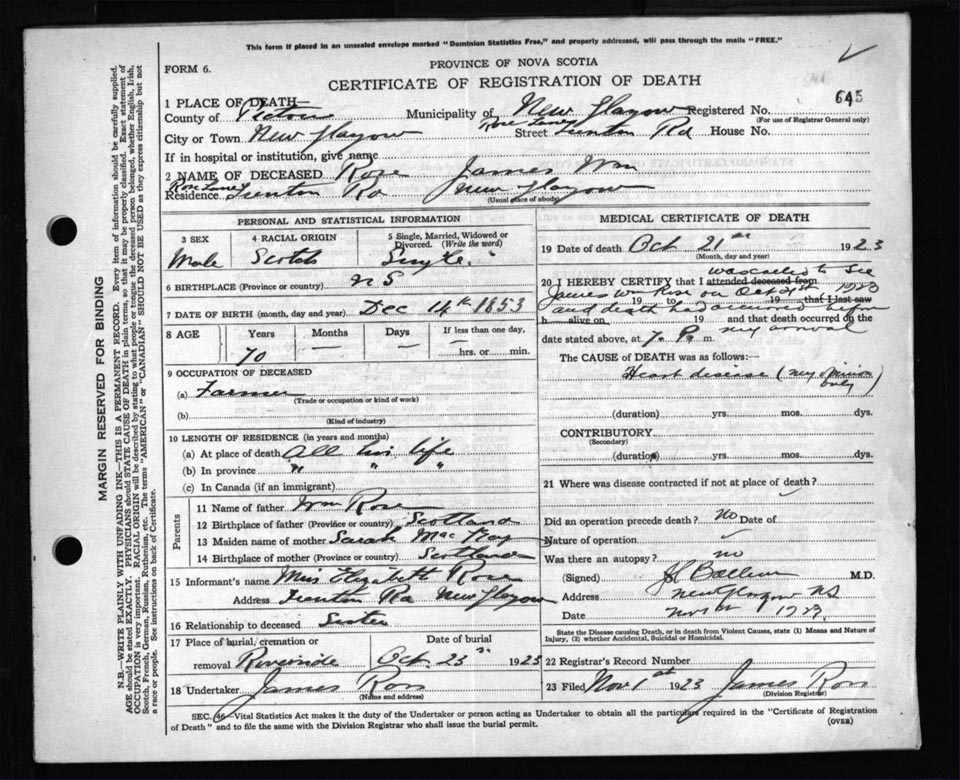 This form if placed in an unsealed envelope marked "Dominion Statistics Free," and properly addressed, will pass through the mails "FREE."
FORM 6.
PROVINCE OF NOVA SCOTIA
CERTIFICATE OF REGISTRATION OF DEATH
645
1 PLACE OF DEATH—
County of Pictou Municipality of New Glasgow Registered No.
(For use of Registrar General only)
City or Town New Glasgow Street Rose Lane Trenton Rd House No.
If in hospital or institution, give name
2 NAME OF DECEASED Rose James Wm
Residence Rose Lane Trenton Rd New Glasgow
(Usual place of abode)
PERSONAL AND STATISTICAL INFORMATION
3 SEX
Male
4 RACIAL ORIGIN
Scotch
5 Single, Married, Widowed or Divorced. (Write the word)
Single
6 BIRTHPLACE (Province or country) N S
7 DATE OF BIRTH (month, day and year) Dec 14th 1853
8 AGE Years Months Days If less than one day,
70 — — hrs. or min.
9 OCCUPATION OF DECEASED
(a) Farmer
(Trade or occupation or kind of work)
(b)
(Kind of industry)
10 LENGTH OF RESIDENCE (in years and months)
(a) At place of death All his life
(b) In province " " "
(c) In Canada (if an immigrant)
Parents
11 Name of father Wm Rose
12 Birthplace of father (Province or country) Scotland
13 Maiden name of mother Sarah Mac Kay
14 Birthplace of mother (Province or country) Scotland
15 Informant's name Miss Elizabeth Rose
Address Trenton Rd New Glasgow
16 Relationship to deceased Sister
17 Place of burial, cremation or Date of burial
removal Riverside Oct 23 1923
18 Undertaker James Ross
(Name and address)
MEDICAL CERTIFICATE OF DEATH
19 Date of death Oct 21st 1923
(Month, day and year)
was called to see
20 I HEREBY CERTIFY that I attended deceased from
James Wm Rose on Oct 21st 1923
19 to 19 that I last saw
and death had occurred before
h alive on 19 and that death occurred on the
my arrival
date stated above, at 7. P. m.
The CAUSE of DEATH was as follows:
Heart disease (my opinion only)
(duration) yrs. mos. dys.
CONTRIBUTORY
(Secondary)
(duration) yrs. mos. dys.
21 Where was disease contracted if not at place of death?
Did an operation precede death? no Date of
Nature of operation
Was there an autopsy? no
(Signed) M.D.
Address New Glasgow NS
Date Nov 1st 1923
State the Disease causing Death, or in death from Violent Causes, state (1) Means and Nature of Injury, (2) whether Accidental, Suicidal or Homicidal.
22 Registrar's Record Number
23 Filed Nov 1st 1923 James Ross
(Division Registrar)
SEC. 46—Vital Statistics Act makes it the duty of the Undertaker or person acting as Undertaker to obtain all the particulars required in the "Certificate of Registration
of Death" and to file the same with the Division Registrar who shall issue the burial permit.
(OVER)
MARGIN RESERVED FOR BINDING
N.B.—WRITE PLAINLY WITH UNFADING INK—THIS IS A PERMANENT RECORD. Every item of information should be carefully supplied.
AGE should be stated EXACTLY. PHYSICIANS should STATE CAUSE OF DEATH in plain terms, so that it may be properly classified. Exact statement of
OCCUPATION is very important. RACIAL ORIGIN will be described by stating to what people or tongue the deceased person belonged, whether English, Irish,
Scotch, French, German, Russian, Ruthenian, etc. The terms "AMERICAN" or "CANADIAN" SHOULD NOT BE USED as they express citizenship but not
a race or people. See instructions on back of Certificate.